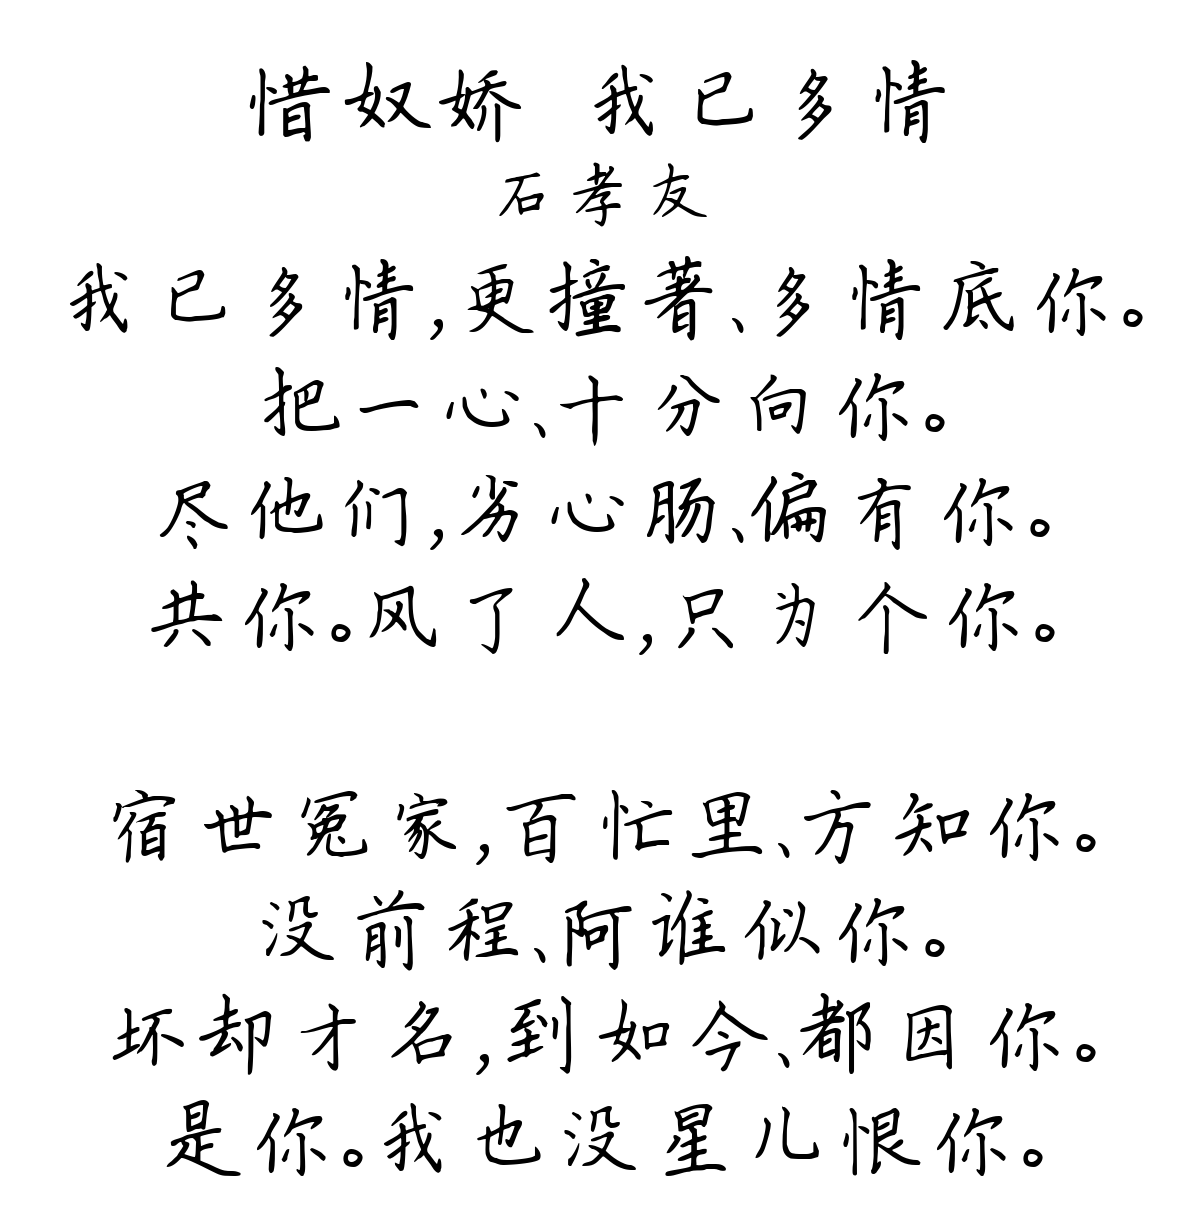 惜奴娇 我已多情
石孝友
我已多情,更撞著、多情底你。
把一心、十分向你。
尽他们,劣心肠、偏有你。
共你。风了人,只为个你。
宿世冤家,百忙里、方知你。
没前程、阿谁似你。
坏却才名,到如今、都因你。
是你。我也没星儿恨你。